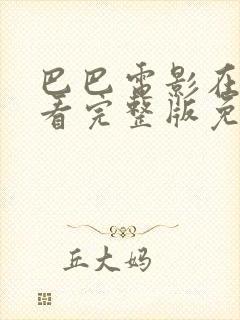 巴巴雷影在
看完整版免
丘大妈